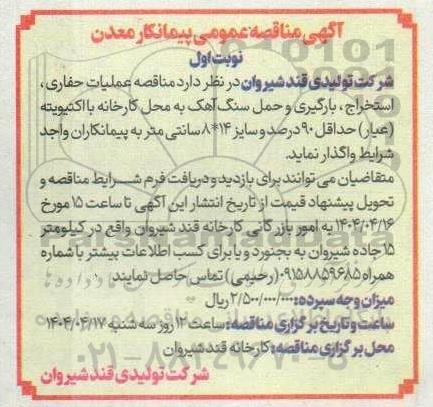 آگهی مناقصه عمومی پیمانکار معدن
نوبت اول
شرکت تولیدی قند شیروان در نظر دارد مناقصه عملیات حفاری ،
استخراج ، بارگیری و حمل سنگ آهک به محل کارخانه با اکتیویته
(عیار) حداقل ۹۰ درصد و سایز ۱۴*۸ سانتی متر به پیمانکاران واجد
شرایط واگذار نماید.
متقاضیان می توانند برای بازدید و دریافت فرم شرایط مناقصه و
تحویل پیشنهاد قیمت از تاریخ انتشار این آگهی تا ساعت ۱۵ مورخ
۱۴۰۴/۰۴/۱۶ به امور بازرگانی کارخانه قند شیروان واقع در کیلومتر
۱۵ جاده شیروان به بجنورد و یا برای کسب اطلاعات بیشتر با شماره
همراه ۰۹۱۵۸۸۵۹۶۸۵ (رحیمی) تماس حاصل نمایند
میزان وجه سپرده: ۲/۵۰۰/۰۰۰/۰۰۰ ریال
ساعت و تاریخ برگزاری مناقصه: ساعت ۱۲ روز سه شنبه ۱۴۰۴/۰۴/۱۷
محل برگزاری مناقصه: کارخانه قند شیروان
شرکت تولیدی قند شیروان